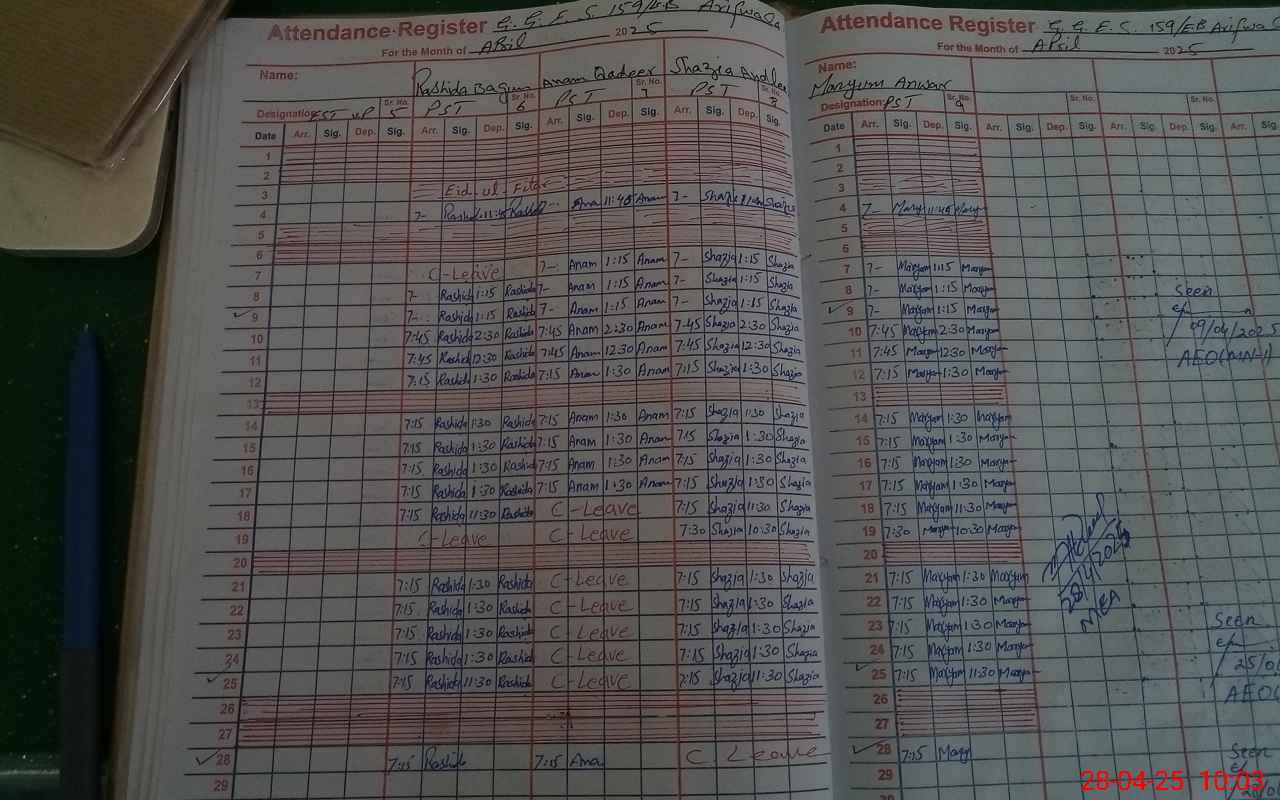 Attendance Register G. G. E. S. 159/EB Arifwala
For the Month of April 2025
Name: Rashida Bagum Anam Qadeer Shazia
Designation: EST 5 PST Sr. No. 6 PST Sr. No. 7 PST Sr. No. 8
Date Arr. Sig. Dep. Sig. Arr. Sig. Dep. Sig. Arr. Sig. Dep. Sig. Arr. Sig. Dep. Sig.
1
2
3 Eid-ul-Fitar
4 7- Rashida 11:45 Rashida Ana 11:45 Anam 7- Shazia Shazia
5
6
7 C-Leave 7- Anam 1:15 Anam 7- Shazia 1:15 Shazia
8 7- Rashida 1:15 Rashida 7- Anam 1:15 Anam 7- Shazia 1:15 Shazia
9 7- Rashida 1:15 Rashida 7- Anam 1:15 Anam 7- Shazia 1:15 Shazia
10 7:45 Rashida 2:30 Rashida 7:45 Anam 2:30 Anam 7:45 Shazia 2:30 Shazia
11 7:45 Rashida 12:30 Rashida 7:45 Anam 12:30 Anam 7:45 Shazia 12:30 Shazia
12 7:15 Rashida 1:30 Rashida 7:15 Anam 1:30 Anam 7:15 Shazia 1:30 Shazia
13
14 7:15 Rashida 1:30 Rashida 7:15 Anam 1:30 Anam 7:15 Shazia 1:30 Shazia
15 7:15 Rashida 1:30 Rashida 7:15 Anam 1:30 Anam 7:15 Shazia 1:30 Shazia
16 7:15 Rashida 1:30 Rashida 7:15 Anam 1:30 Anam 7:15 Shazia 1:30 Shazia
17 7:15 Rashida 1:30 Rashida 7:15 Anam 1:30 Anam 7:15 Shazia 1:30 Shazia
18 7:15 Rashida 11:30 Rashida C-Leave 7:15 Shazia 11:30 Shazia
19 C-Leave C-Leave 7:30 Shazia 10:30 Shazia
20
21 7:15 Rashida 1:30 Rashida C-Leave 7:15 Shazia 1:30 Shazia
22 7:15 Rashida 1:30 Rashida C-Leave 7:15 Shazia 1:30 Shazia
23 7:15 Rashida 1:30 Rashida C-Leave 7:15 Shazia 1:30 Shazia
24 7:15 Rashida 1:30 Rashida C-Leave 7:15 Shazia 1:30 Shazia
25 7:15 Rashida 11:30 Rashida C-Leave 7:15 Shazia 11:30 Shazia
26
27
28 7:15 Rashid 7:15 Ana C Leave
29
Attendance Register G. G. E. S. 159/EB Arifwala
For the Month of April 2025
Name: Maryum Anwar
Designation: PST Sr. No. 9 Sr. No. Sr. No.
Date Arr. Sig. Dep. Sig. Arr. Sig. Dep. Sig. Arr. Sig. Dep. Sig. Arr. Sig.
1
2
3
4 7- Mary 11:45 Mary
5
6
7 7- Maryam 1:15 Maryam
8 7- Maryam 1:15 Maryam Seen
9 7- Maryam 1:15 Maryam
10 7:45 Maryam 2:30 Maryam 09/04/2025
11 7:45 Maryam 12:30 Maryam AEO(MN-I)
12 7:15 Maryam 1:30 Maryam
13
14 7:15 Maryam 1:30 Maryam
15 7:15 Maryam 1:30 Maryam
16 7:15 Maryam 1:30 Maryam
17 7:15 Maryam 1:30 Maryam
18 7:15 Maryam 11:30 Maryam
19 7:30 Maryam 10:30 Maryam
20
21 7:15 Maryam 1:30 Maryum 28/4/2025
22 7:15 Maryam 1:30 Maryam MEA
23 7:15 Maryam 1:30 Maryam Seen
24 7:15 Maryam 1:30 Maryam
25 7:15 Maryam 11:30 Maryam 25/0
26 AEO(
27
28 7:15 Mary Seen
29
28-04-25 10:03